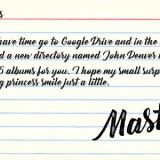 have time go to Google Drive and in the
d a new directory named John Denver
6 albums for you. I hope my small surp
g princess smile just a little.
Mast